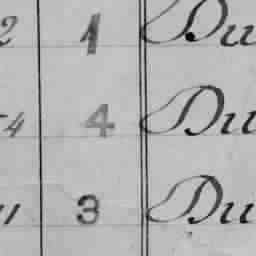 2 1 Du
4 4 Du
11 3 Du